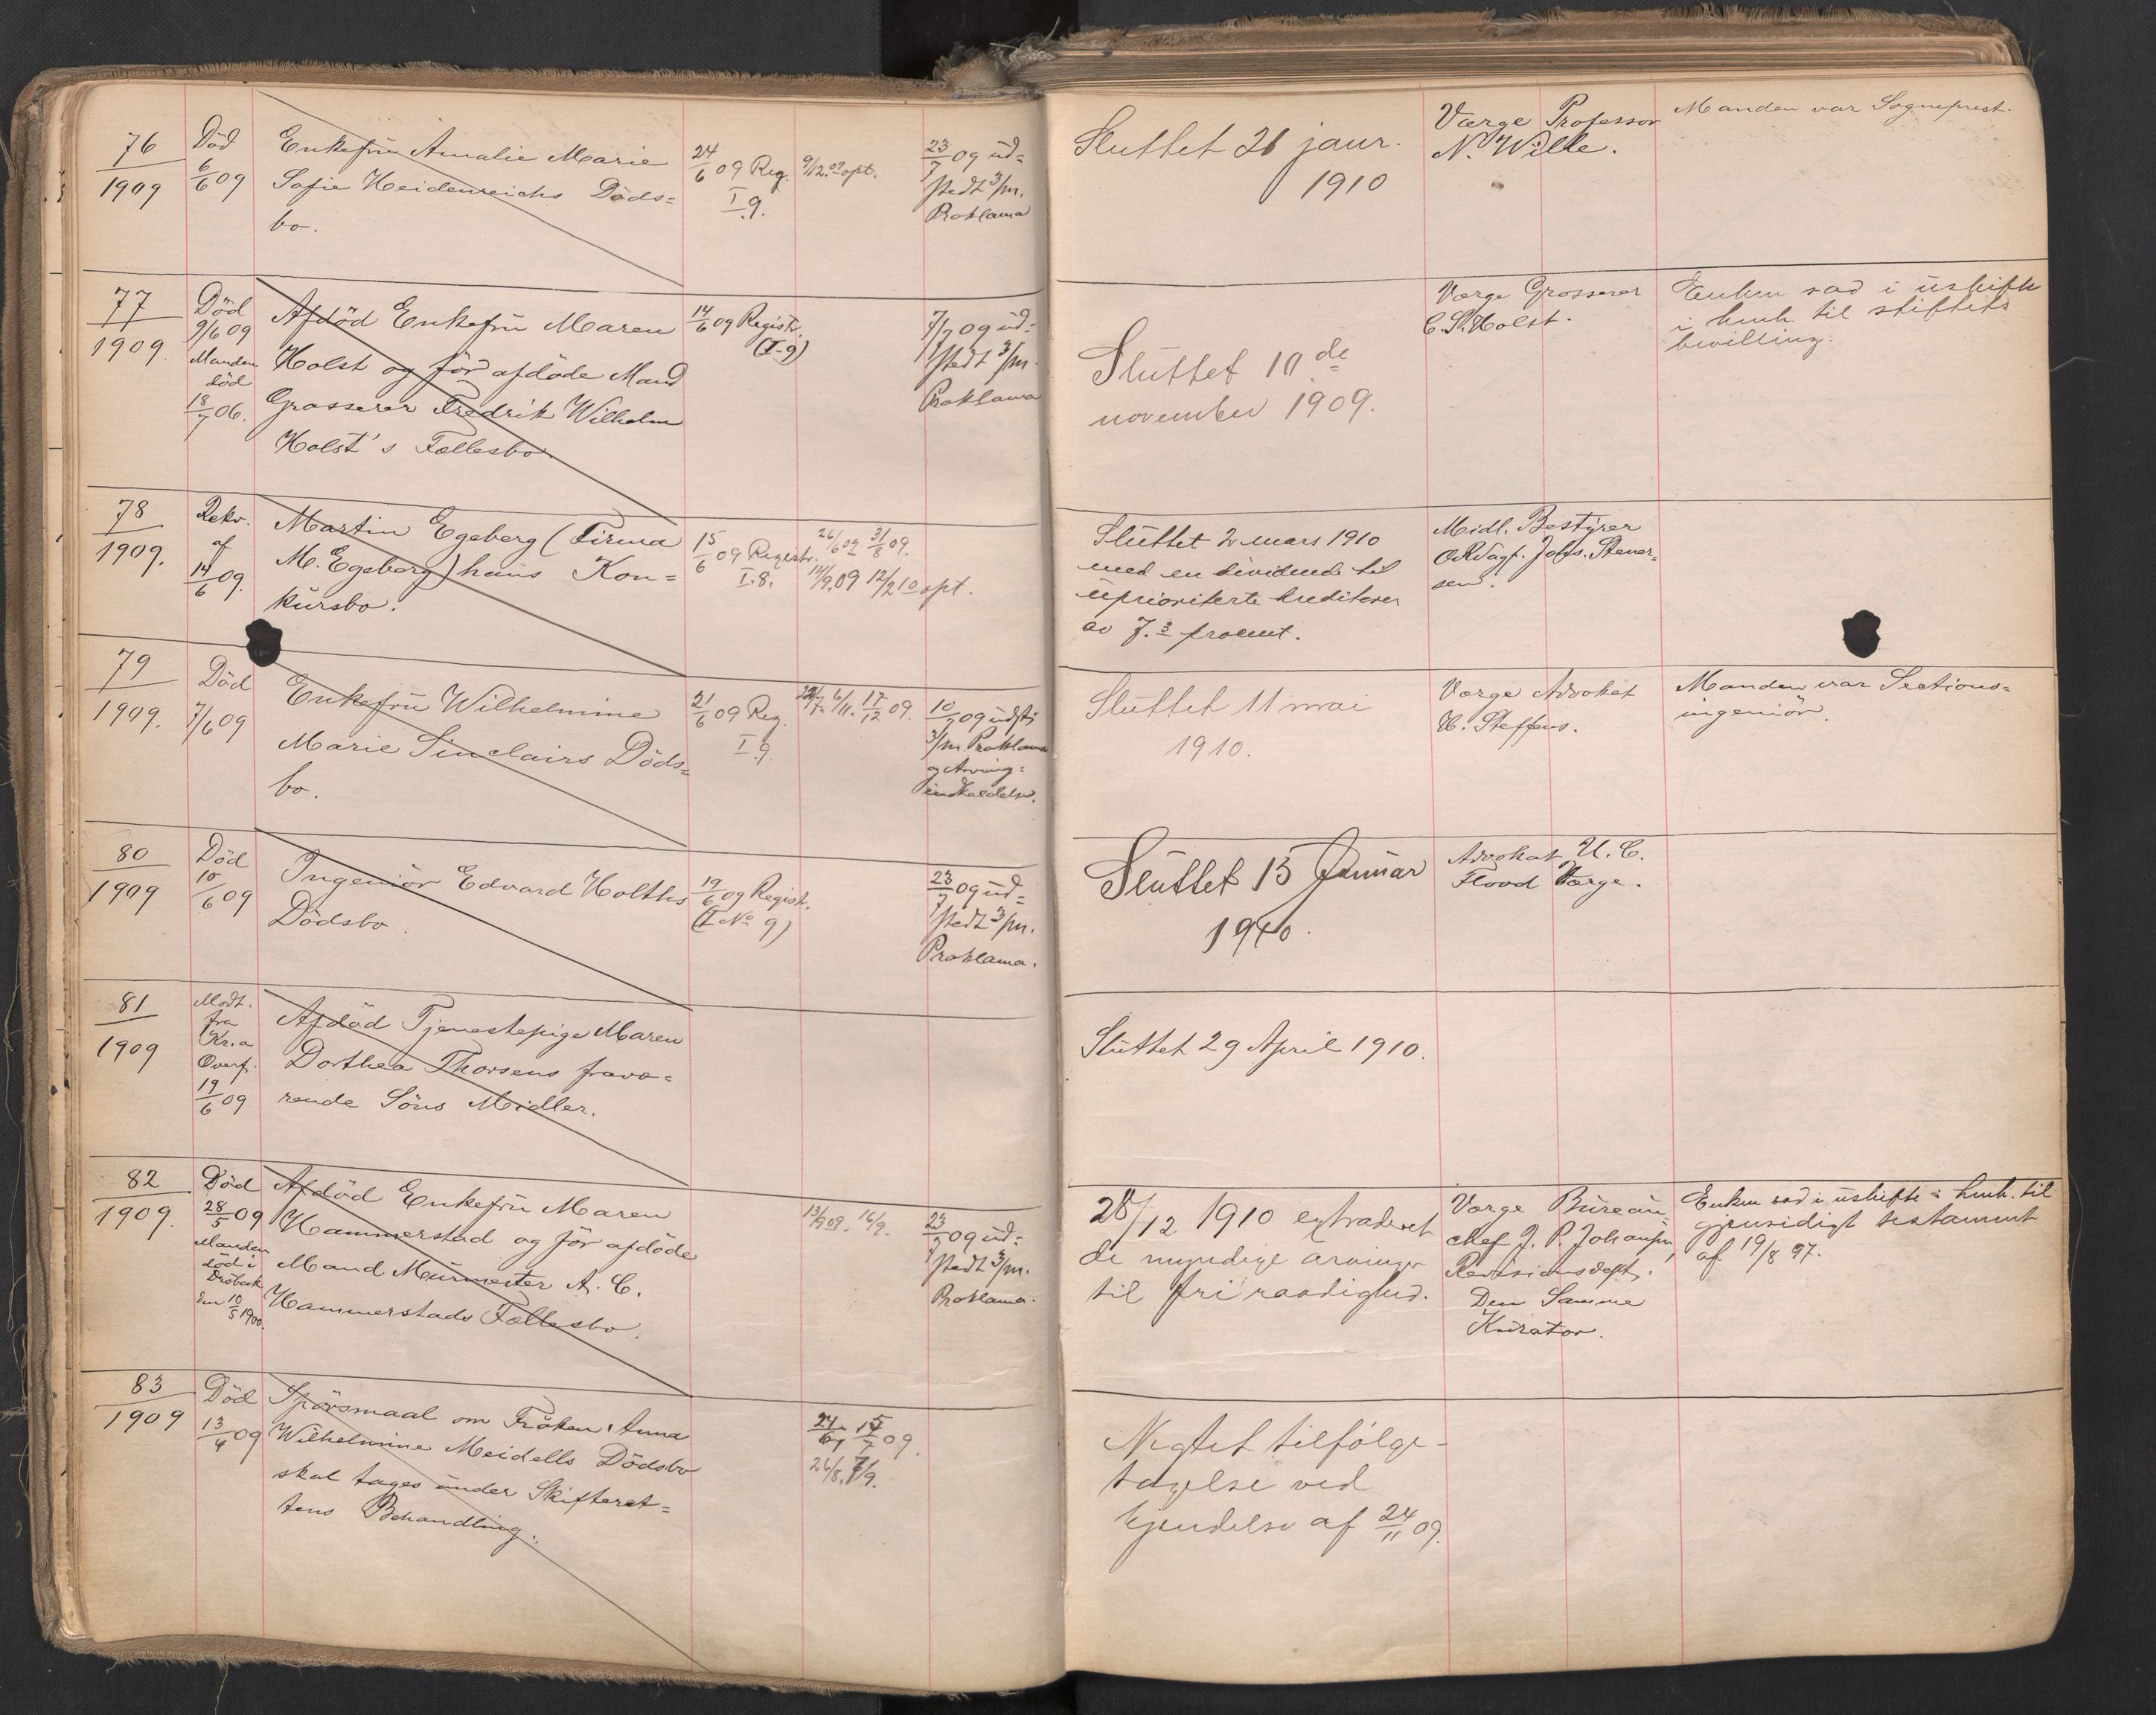 76
1909
Död
6/6 09
Enkefrü Amalie Marie
Sofie Heidenreichs Döds=
bo.
24/6 09 Reg.
I.9.
9/12.09 opt.
23/7 09 üd=
stedt 3/m.
Proklama
Sluttet 21 janr.
1910
Værge Professor
N. Wille.
Manden var Sogneprest.
77
1909.
Död
9/6 09
Manden
död
18/7 06.
Afdöd Enkefrü Maren
Holst og för afdöde Mand
Grosserer Fredrik Wilhelm
Holst's Fællesbo
14/6 09 Registr.
(I-9)
7/7 09 üd=
stedt 3/m.
Proklama
Sluttet 10de
november 1909.
Værge Grosserer
C. S. Holst.
Enken sad i üskifte
i henh. til stiftets
bevilling.
78
1909.
Rekv.
af
14/6 09.
Martin Egeberg (Firma
M. Egeberg) hans Kon=
kürsbo.
15/6 09 Registr.
I.8.
26/6 09 31/8 09.
14/9.09 12/2 10 opt.
Slüttet 2 mars 1910
med en dividende til
üprioriterte kreditorer
av 7.3 procent.
Midl. Bestÿrer
O.R.Sagf. Johs. Stener=
sen.
79
1909.
Död
7/6 09
Enkefrü Wilhelmine
Marie Sinclairs Döds=
bo.
21/6 09 Reg.
I.9.
6/11. 17/12 09.
10/7 09 üdst.
3/m. Proklama
og Arving=
indkaldelse.
Sluttet 11 mai
1910.
Værge Advokat
H. Steffens.
Manden var Sections=
ingeniör.
80
1909
Död
10/6 09
Ingeniör Edvard Holths
Dödsbo.
19/6 09 Registr.
(I No 9)
23/7 09 üd=
stedt 3/m.
Proklama.
Slüttet 15 Januar
1910.
Advokat U. C.
Flood Værge.
81
1909
Modt.
fra
Kr.a
Overf.
19/6 09
Afdöd Tjenestepige Maren
Dorthea Thorsens fravæ=
rende Söns Midler.
Slüttet 29 April 1910.
82
1909.
Död
28/5 09
Manden
död i
Dröbak
den 10/5 1900.
Afdöd Enkefrü Maren
Hammerstad og för afdöde
Mand Mürmester A. C.
Hammerstads Fællesbo.
13/9 09. 16/9.
23/7 09 üd=
stedt 3/m.
Proklama.
28/12 1910 extraderet
de myndige arvinger
til fri raadighed.
Værge Büreau=
chef J. P. Johansen,
Revisionsdept.
Den Samme
Kürator.
Enken sad i üskifte i henh. til
gjensidigt testament
af 19/8 97.
83
1909
Död
13/4 09
Spörsmaal om Fröken Anna
Wilhelmine Meidells Dödsbo
skal tages ünder Skifteret=
tens Behandling.
24/6, 15/7 09.
26/8. 7/9.
Negtet tilfölge-
tagelse ved
kjendelse af 24/11 09.